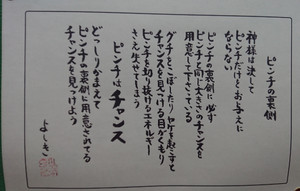 ピンチの裏側
神様は決して
ピンチだけをお与えに
ならない
ピンチの裏側に必ず
ピンチと同じ大きさのチャンスを
用意して下さっている
グチをこぼしたりヤケを起こすと
チャンスを見つける目がくもり
ピンチを切り抜けるエネルギー
さえ失せてしまう
ピンチはチャンス
どっしりかまえて
ピンチの裏側に用意されてる
チャンスを見つけよう
よしき